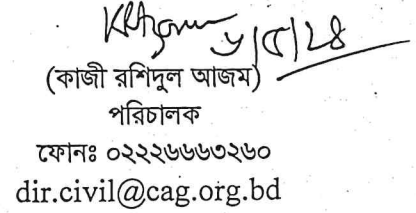 (কাজী রশিদুল আজম)
পরিচালক
ফোনঃ ০২২২৬৬৬৩২৬০
dir.civil@cag.org.bd